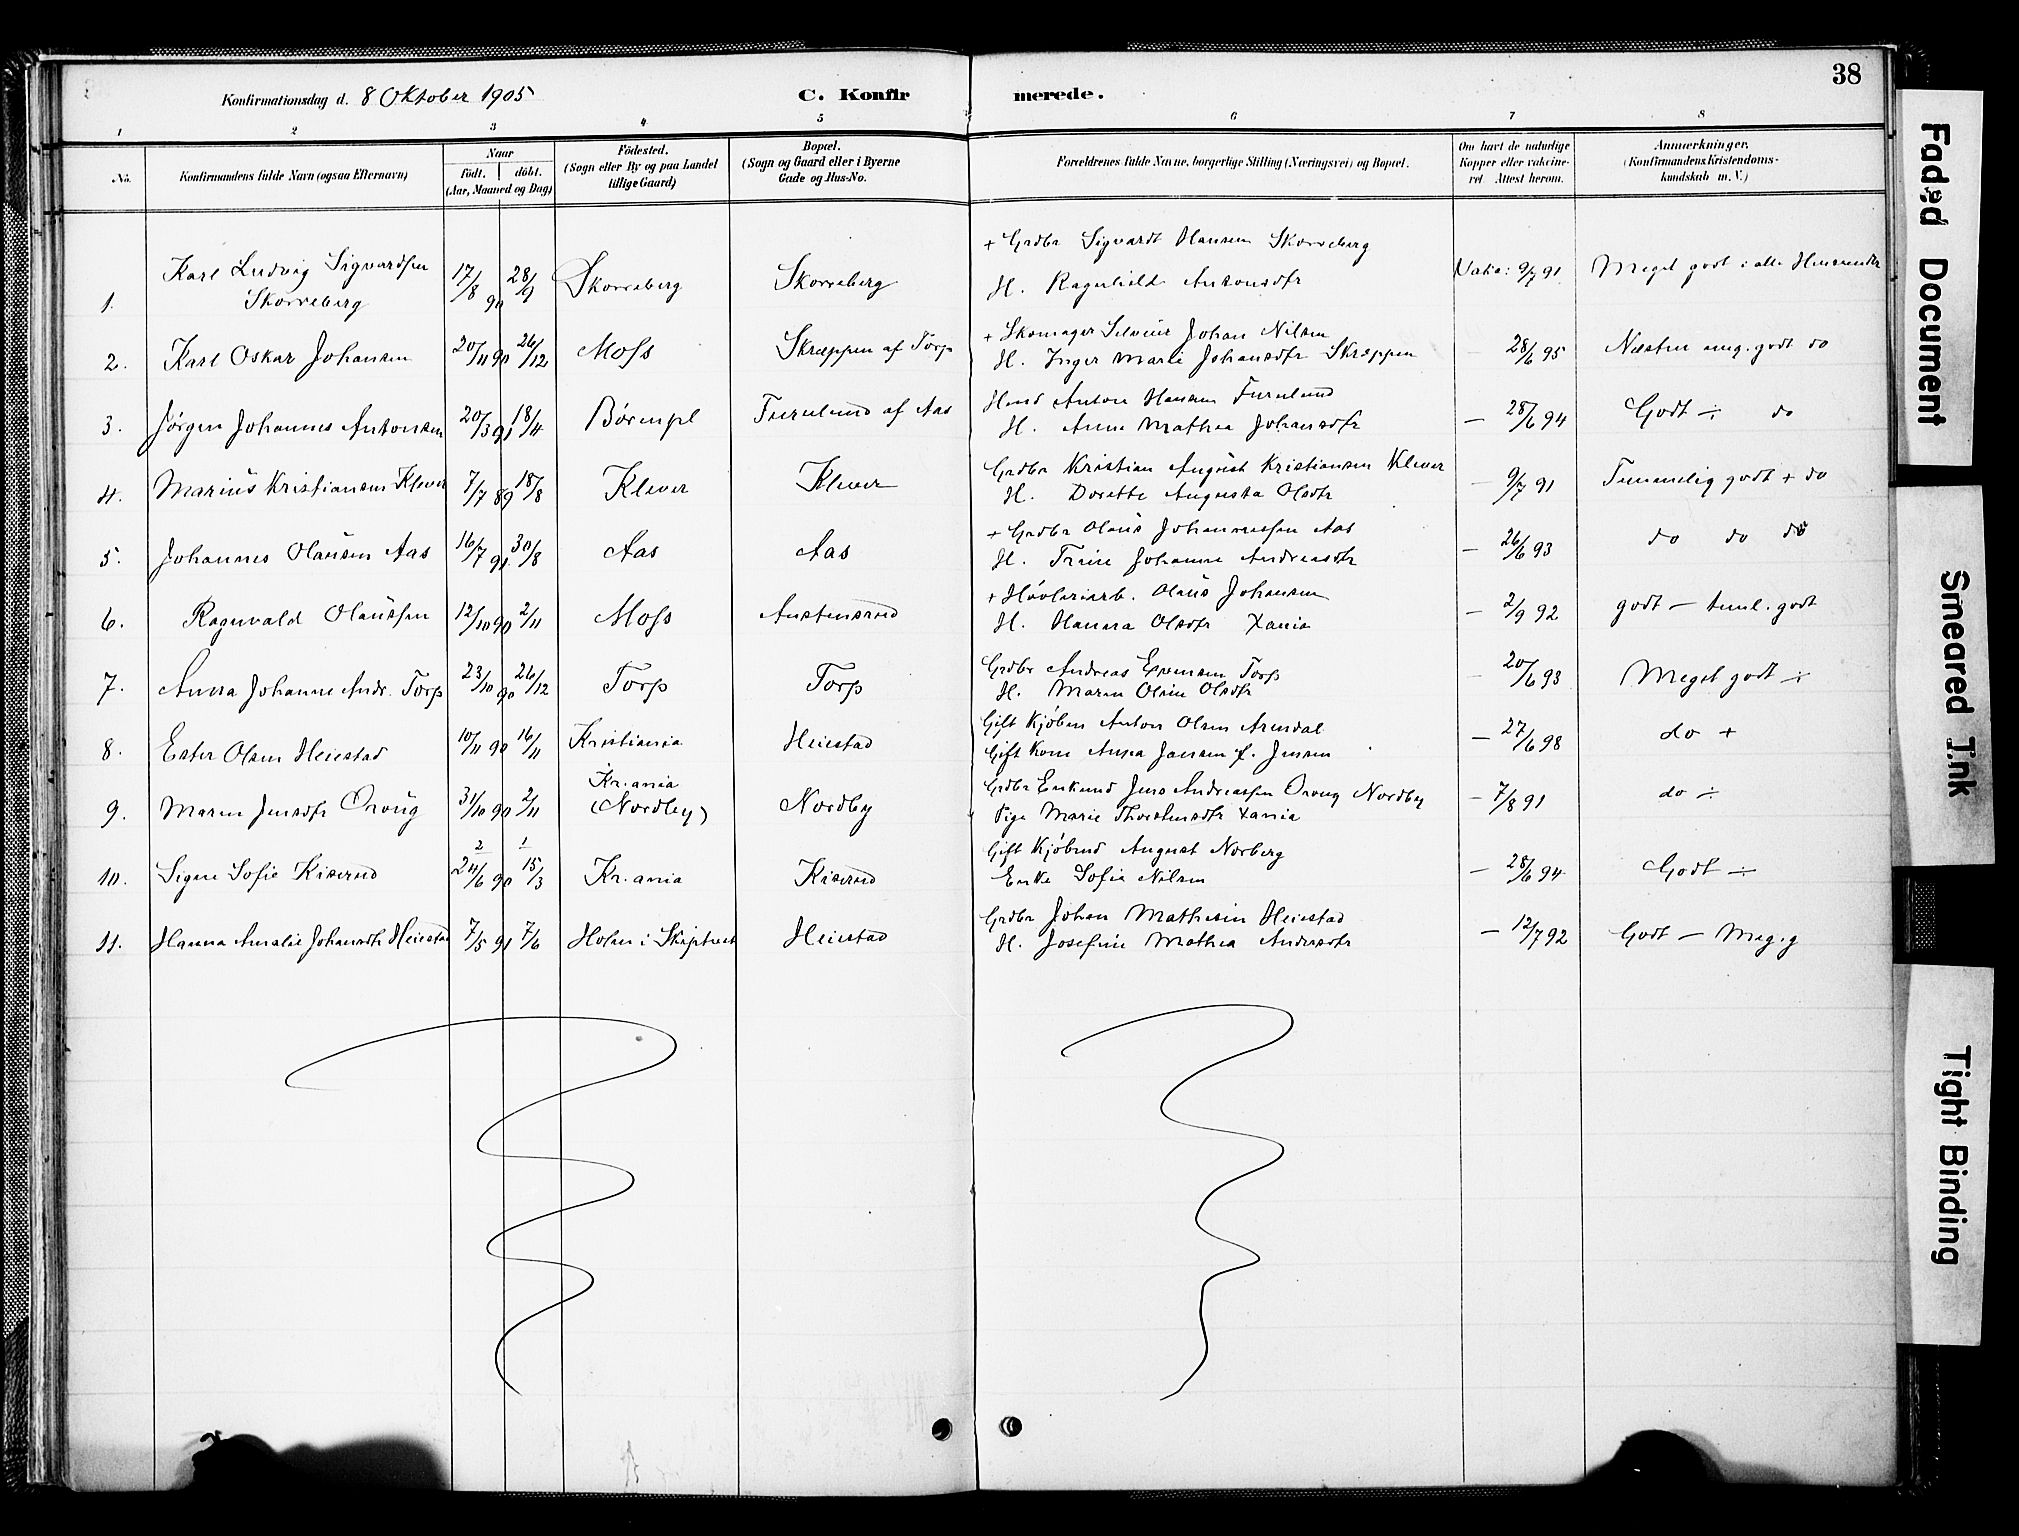 38
Konfirmationsdag d. 8 Oktober 1905
C. Konfir merede.
1 2 3 4 5 6 7 8
No.
Konfirmandens fulde Navn (ogsaa Efternavn)
Naar
født. døbt.
(Aar, Maaned og Dag)
Fødested.
(Sogn eller By og paa Landet
tillige Gaard)
Bopæl.
(Sogn og Gaard eller i Byerne
Gade og Hus-No.
Forældrenes fulde Navne, borgerlige Stilling (Næringsvei) og Bopæl.
Om havt de naturlige
Kopper eller vakcine-
ret Attest herom.
Anmærkninger.
(Konfirmandens Kristendoms-
kundskab m. V.)
+ Grdbr Sigvardt Hansen Skorreberg
Karl Ludvig Sigvardsen 17/8 90 28/9 Skorreberg Skorreberg Vakc: 9/7 91 Meget godt i alle
1. Skorreberg H. Ragnhild Antonsdtr
+ Skomager Johan Nilsen
2. Karl Oskar Johansen 20/11 90 26/12 Moss Skræppen af Torp H. Inger Marie Johansdtr Skræppen - 28/6 95 Næsten meg. godt do
Anton Hansen Furulund
3. Jørgen Johannes Antonsen 20/3 91 18/4 Furulund af Aas H. Anne Mathea Johansdtr - 28/6 94 Godt ÷ do
Grdbr Kristian August Kristiansen Klever
4. Marius Kristiansen Klever 7/7 89 18/8 Klever Klever H. Dorette Augusta Olsdtr - 9/7 91 Temmelig godt + do
+ Grdbr Olaus Johannessen Aas
5. Johannes Olausen Aas 16/7 91 30/8 Aas Aas H. Trine Johanne Andreasdtr - 26/6 93 do do do
+ Høvleriarb. Olaus Johansen
6. Ragnvald Olaussen 12/10 90 2/11 Moss H. Hanna Olsdtr Xania - 2/9 92 godt - teml. godt
Grdbr Andreas Evensen Torp
7. Anna Johanne Andr. Torp 23/10 90 26/12 Torp Torp H. Maren Oline Olsdtr - 20/6 93 Meget godt ÷
Gift Kjøbm Anton Olsen Arendal
8. Ester Olsen Heiestad 10/11 90 16/11 Kristiania Heiestad Gift Kone Anna Jansen f. Jensen - 27/6 98 do +
Kr.ania
Grdbr Enkmd Jens Andreassen Oroug Nordby
9. Maren Jensdtr Oroug 31/10 90 2/11 (Nordby) Nordby Pige Marie Thorstensdtr Xania - 7/8 91 do ÷
2 1
Gift Kjøbmd August Norberg
10. Signe Sofie Kiserud 24/6 90 15/3 Kr.ania Kiserud Enke Sofie Nilsen - 28/6 94 Godt ÷
Grdbr Johan Mathisen Heiestad
11. Hanna Amalie Johansdtr Heiestad 7/5 91 7/6 Holm i Skiptvet Heiestad H. Josefine Mathea Andersdtr - 12/7 92 Godt - Meg. g
Faded Document
Smeared Ink
Tight Binding